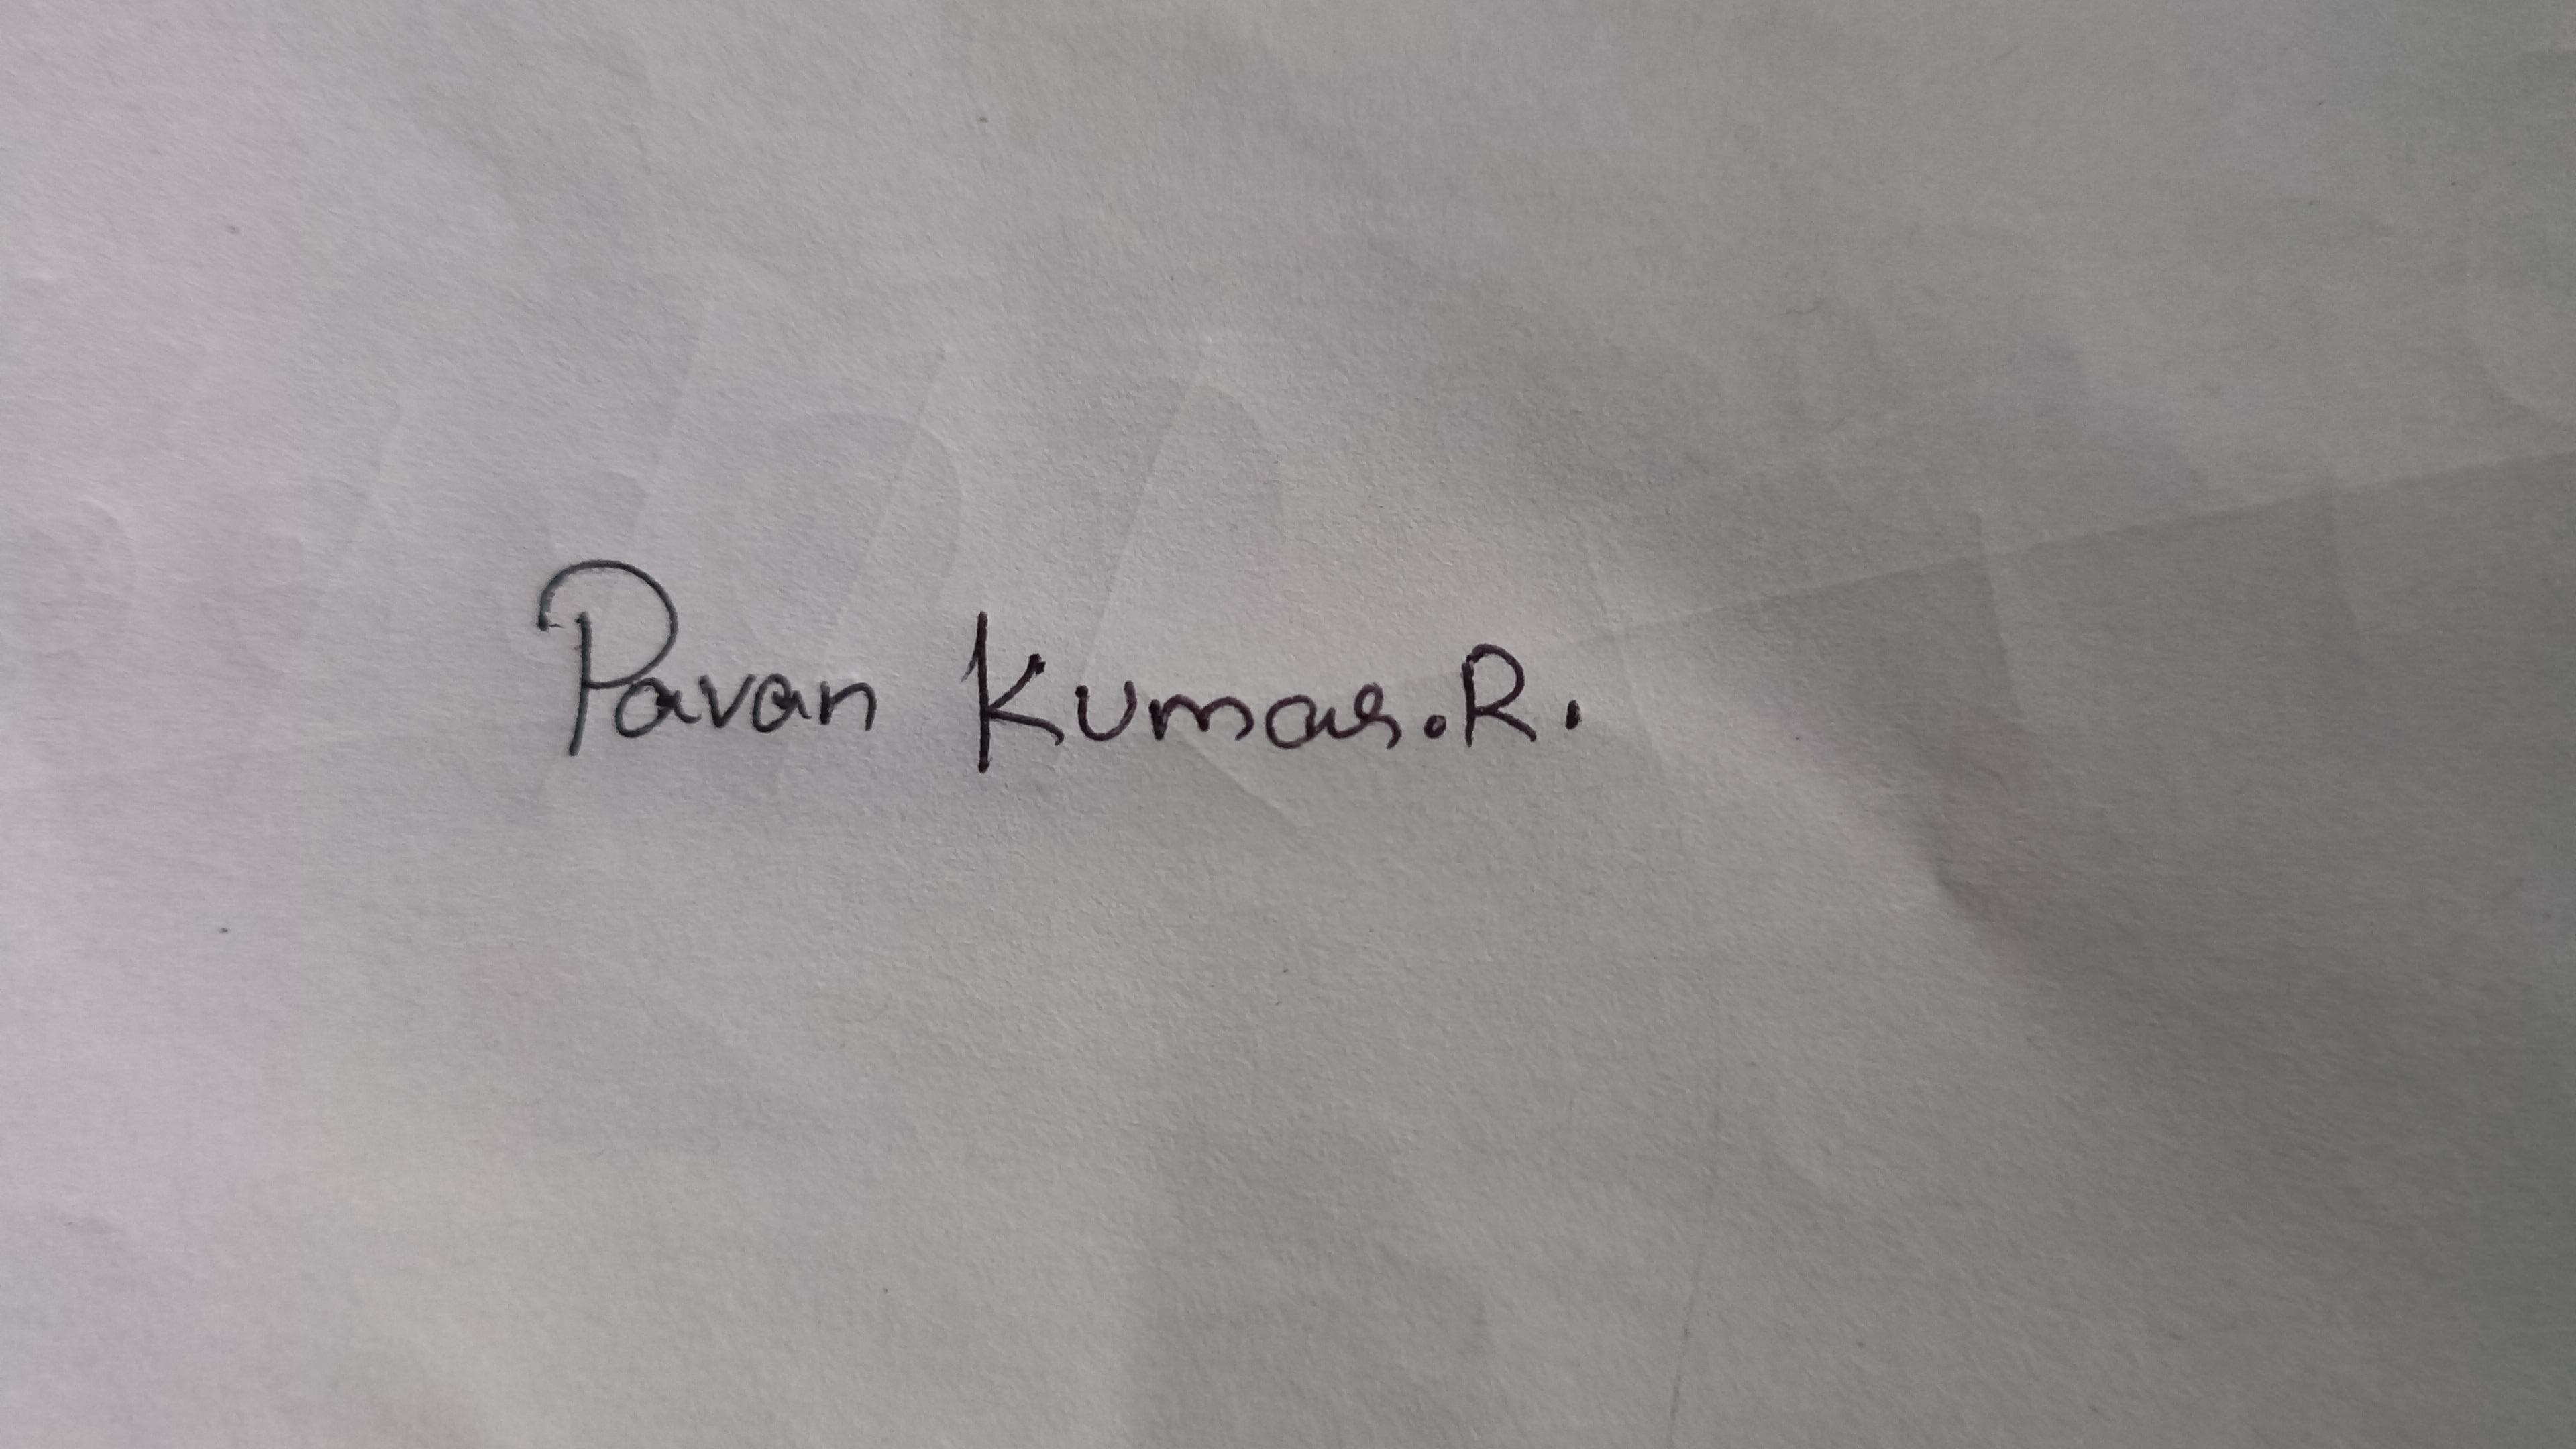 Pavan Kumar.R.